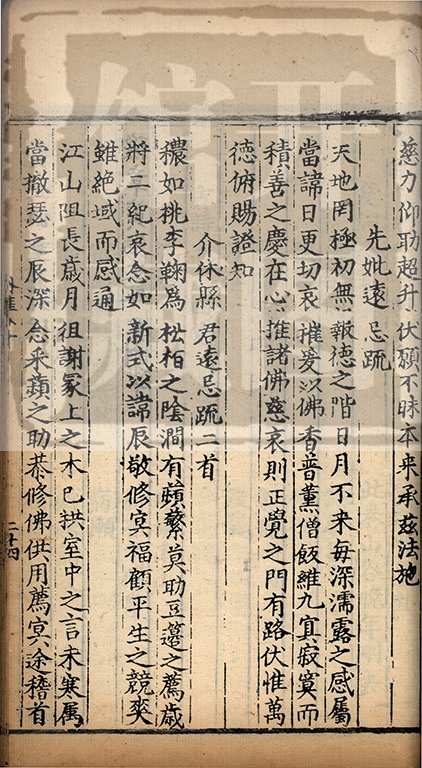 慈力仰助超升伏願不昧本來承茲法施
先妣遠忌䟽
天地罔極初無報德之階日月不來每深濡露之感屬
當諱日更切哀摧爰以佛香普薰僧飯維九冥寂寞而
積善之慶在心推諸佛慈哀則正覺之門有路伏惟萬
德俯賜證知
介休縣君遠忌䟽二首
穠如桃李鞠爲松栢之陰澗有蘋蘩莫助豆籩之薦歳
將二紀哀念如新式以諱辰敬修冥福顧平生之競爽
雖絶域而感通
江山阻長歳月徂謝冢上之木已拱室中之言未寒属
當撤瑟之辰深念采蘋之助恭修佛供用薦冥途稽首
二十四